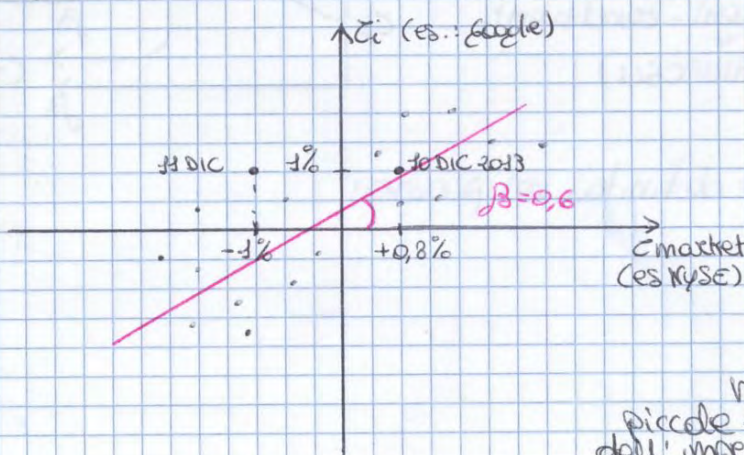 ri (es.: Google)
11 DIC 1% 10 DIC 2013
β=0,6
-1% +0,8%
rmarket
(es NYSE)
piccole
dall'